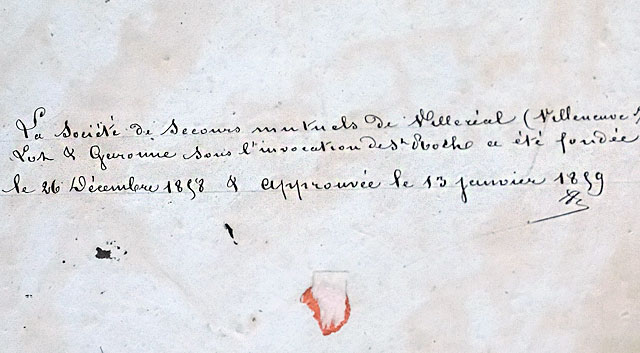 La Société de Secours mutuels de Villeréal (Villeneuve s/
Lot & Garonne sous l'invocation de St Roche a été fondée
le 26 Décembre 1858 & approuvée le 13 janvier 1859